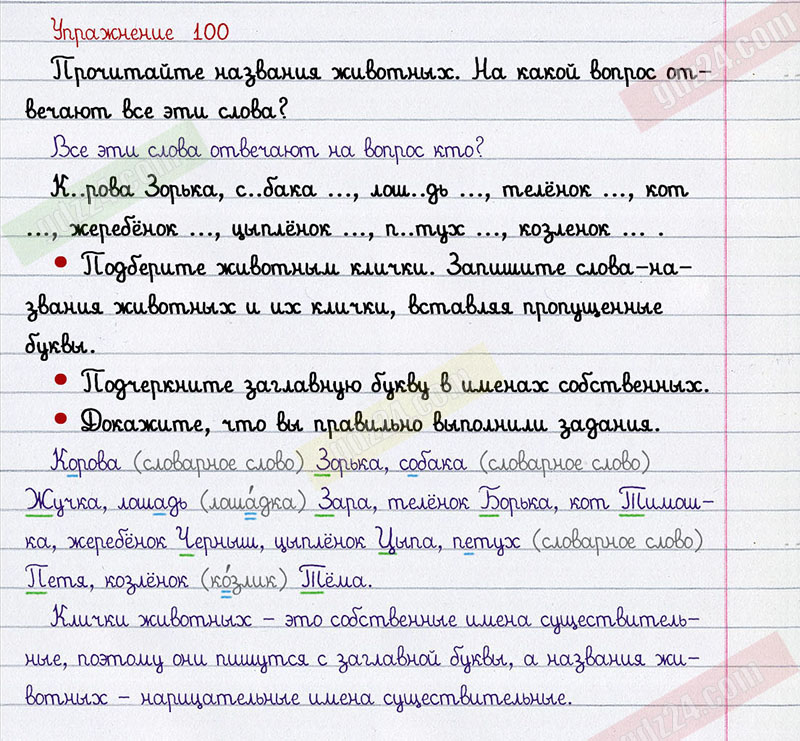 Упражнение 100
Прочитайте названия животных. На какой вопрос от-
вечают все эти слова?
Все эти слова отвечают на вопрос кто?
К..рова Зорька, с..бака ..., лош..дь ..., телёнок ..., кот
..., жеребёнок ..., цыплёнок ..., п..тух ..., козленок ... .
• Подберите животным клички. Запишите слова-на-
звания животных и их клички, вставляя пропущенные
буквы.
• Подчеркните заглавную букву в именах собственных.
• Докажите, что вы правильно выполнили задания.
Корова (словарное слово) Зорька, собака (словарное слово)
Жучка, лошадь (лоша́дка) Зара, телёнок Борька, кот Тимош-
ка, жеребёнок Черныш, цыплёнок Цыпа, петух (словарное слово)
Петя, козлёнок (ко́злик) Тёма.
Клички животных – это собственные имена существитель-
ные, поэтому они пишутся с заглавной буквы, а названия жи-
вотных – нарицательные имена существительные.
guz24.com
guz24.com
guz24.com
guz24.com